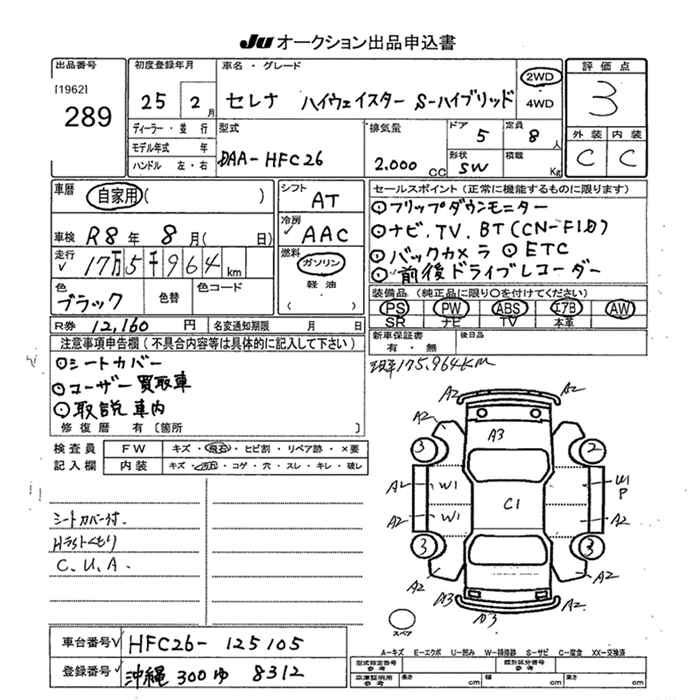 JU オークション出品申込書
出品番号
[1962]
289
初度登録年月
25 2月
車名・グレード
セレナ ハイウェイスター S-ハイブリッド
2WD
4WD
評価点
3
外装 内装
C C
ディーラー・並行
モデル年式 年
ハンドル 左・右
型式
DAA-HFC26
排気量
2.000 CC
ドア 5
定員 8人
形状 SW
積載 Kg
車歴
自家用( )
車検 R8年 8月( 日)
走行
√ 17万5千964km
色
ブラック
色替
色コード
R券 12,160円
名変通知期限 月 日
シフト
AT
冷房
√ AAC
燃料
ガソリン
軽油
( )
セールスポイント(正常に機能するものに限ります)
○フリップダウンモニター
○ナビ.TV.BT(CN-F1D)
○バックカメラ ○ETC
○前後ドライブレコーダー
装備品(純正品に限り○を付けてください)
PS PW ABS エアB AW
SR ナビ TV 本革
新車保証書
有・無
後日品
注意事項申告欄(不具合内容等は具体的に記入して下さい)
○シートカバー
○ユーザー買取車
○取説車内
修復歴 有〔箇所 〕
検査員
記入欄
FW キズ・飛石・ヒビ割・リペア跡・×要
内装 キズ・汚れ・コゲ・穴・スレ・キレ・破レ
シートカバー付.
Hライトくもり
C.U.A.
175,964KM
A2 A2
A2 A3 A2
3 2
A2 W1 C1 P
A2 W1 A2
3 3
A2 A2
A3 A3
スペア
車台番号√ HFC26-125105
登録番号> 沖縄 300 ゆ 8312
A-キズ E-エクボ U-凹み W-補修跡 S-サビ C-腐食 XX-交換済
型式指定番号
参考
類別区分番号
参考
車庫証明用
参考
長さ cm 幅 cm 高さ cm